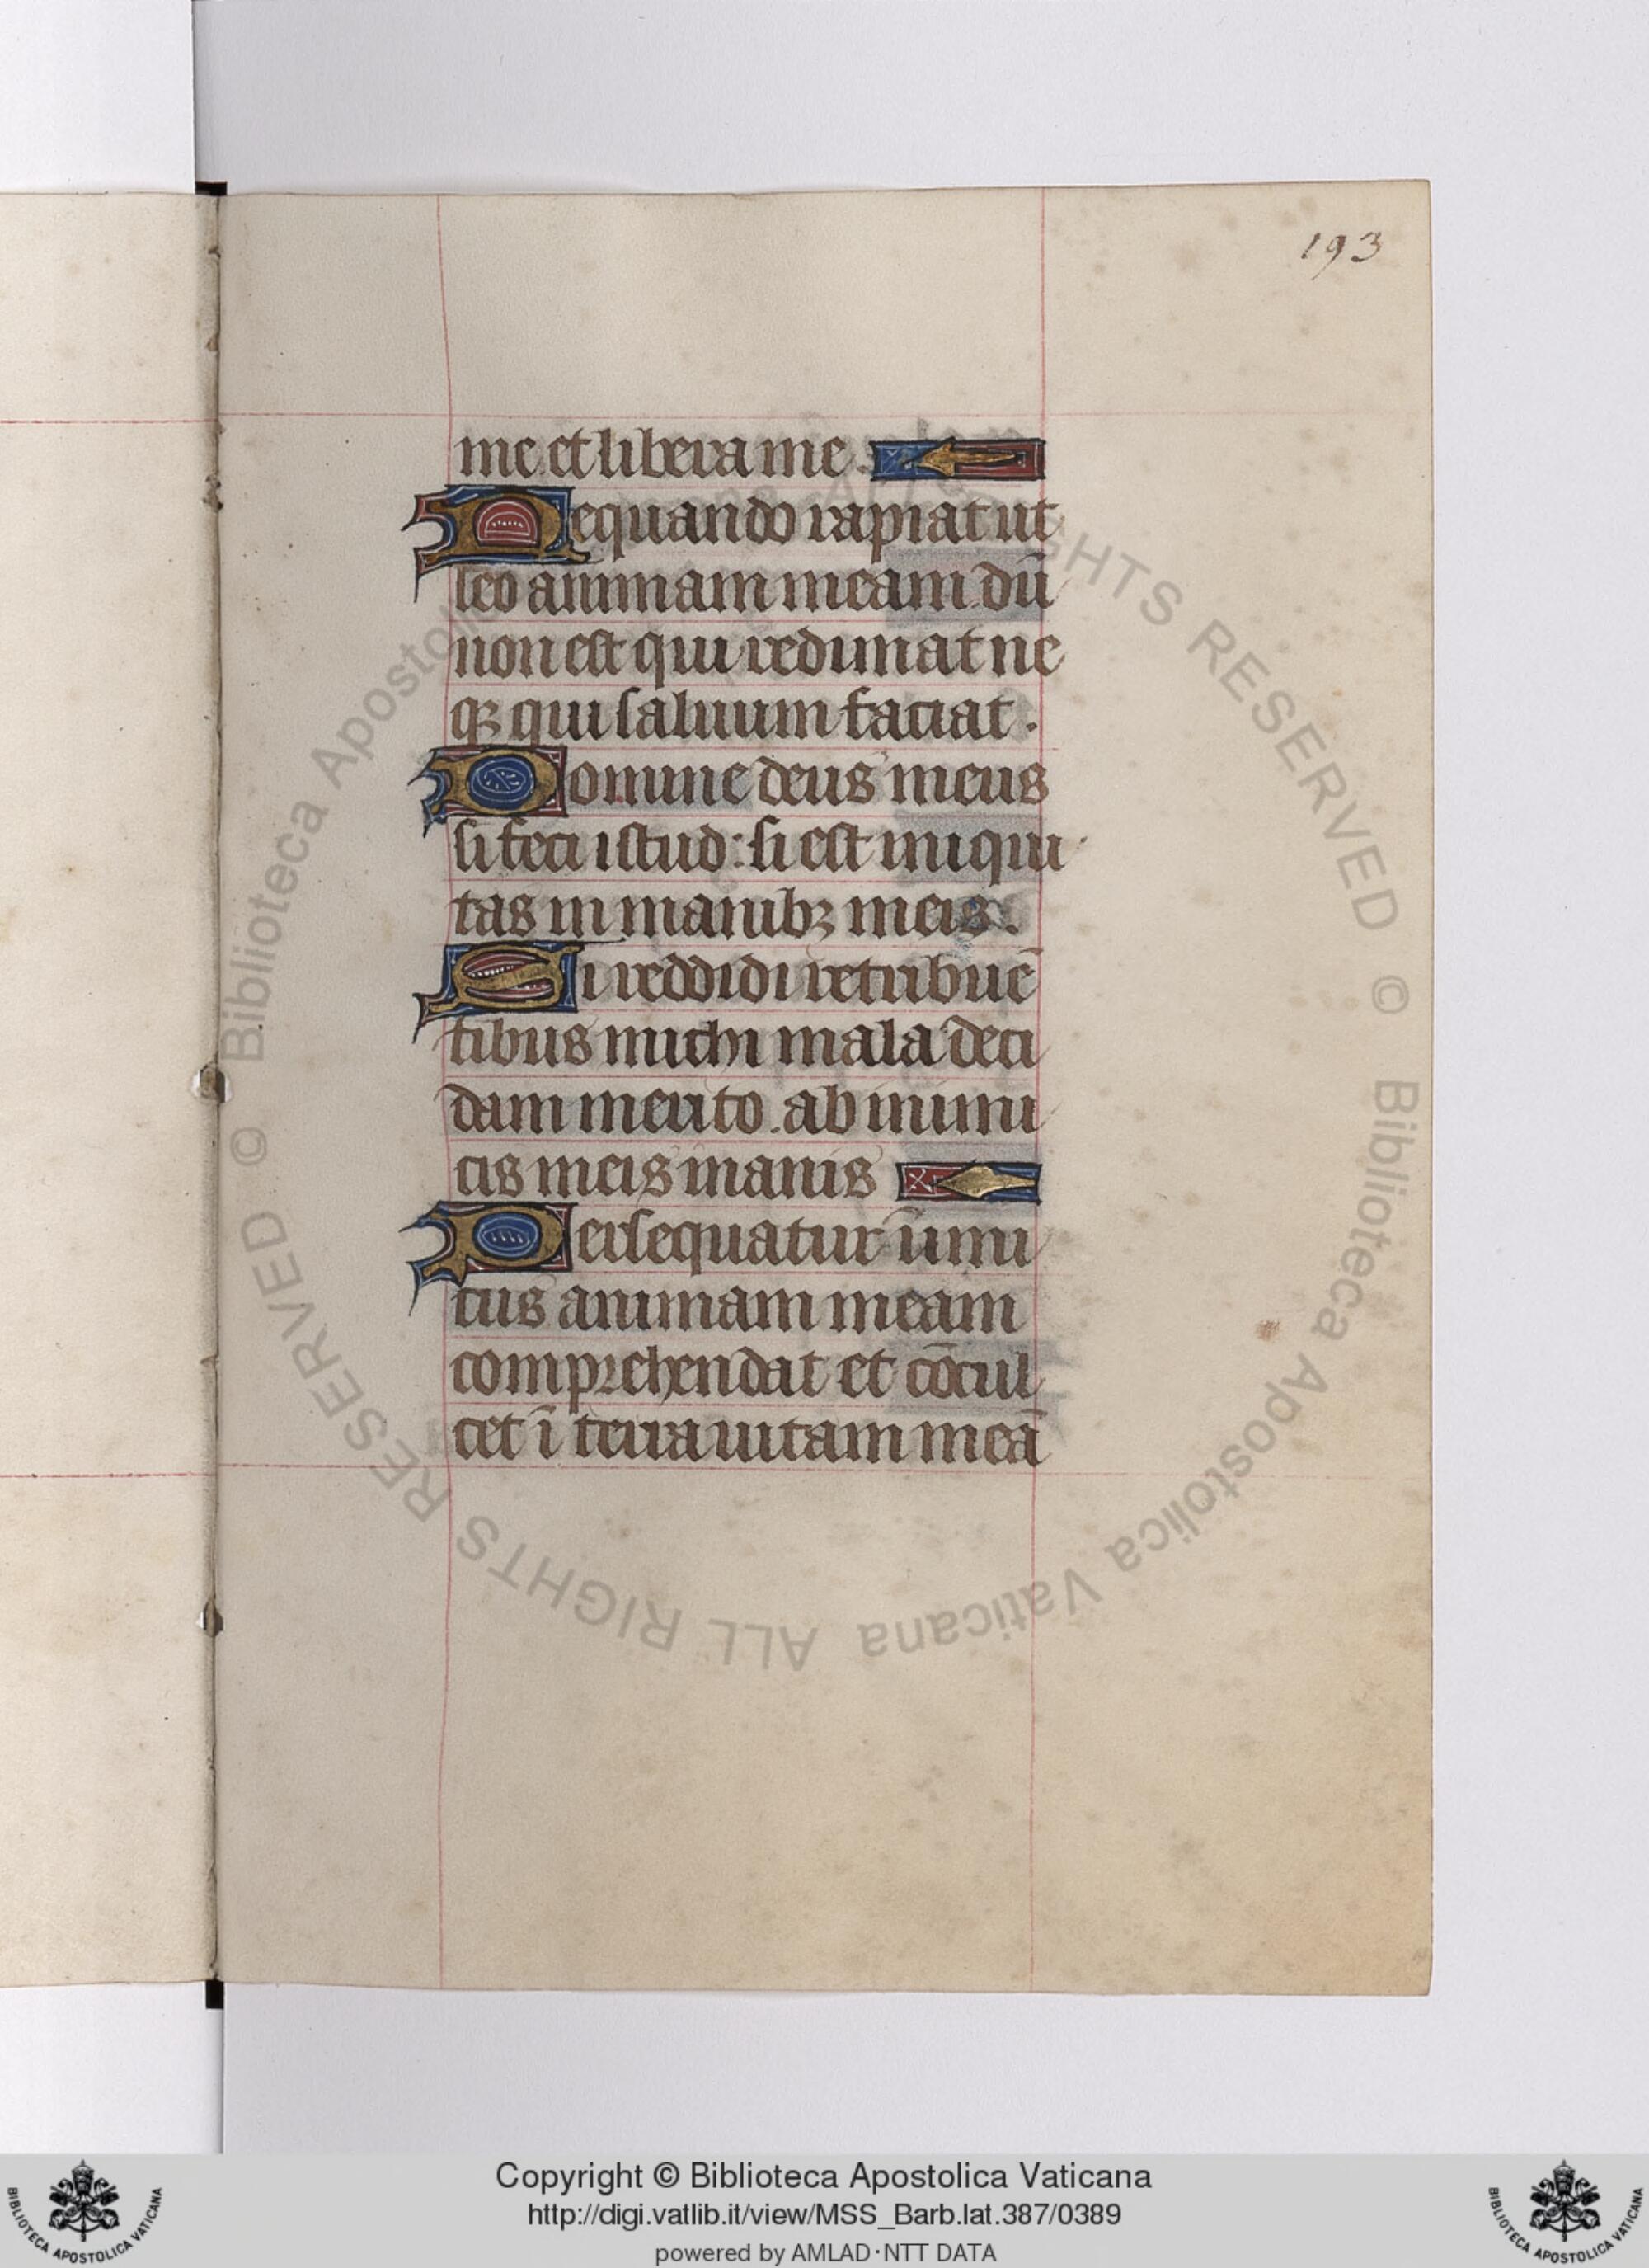 193
me et libera me.
Nequando rapiat ut
leo animam meam dū
non est qui redimat ne
qꝫ qui saluum faciat.
Domine deus meus
si feci istud: si est iniqui
tas in manibꝫ meis.
Si reddidi retribuē
tibus michi mala deci
dam merito. ab inimi
cis meis inanis
Persequatur inimi
cus animam meam
comprehendat et cōcul
cet ī terra uitam meā
© Biblioteca Apostolica Vaticana ALL RIGHTS RESERVED
© Biblioteca Apostolica Vaticana ALL RIGHTS RESERVED
Copyright © Biblioteca Apostolica Vaticana
http://digi.vatlib.it/view/MSS_Barb.lat.387/0389
powered by AMLAD·NTT DATA
BIBLIOTECA APOSTOLICA VATICANA
BIBLIOTECA APOSTOLICA VATICANA